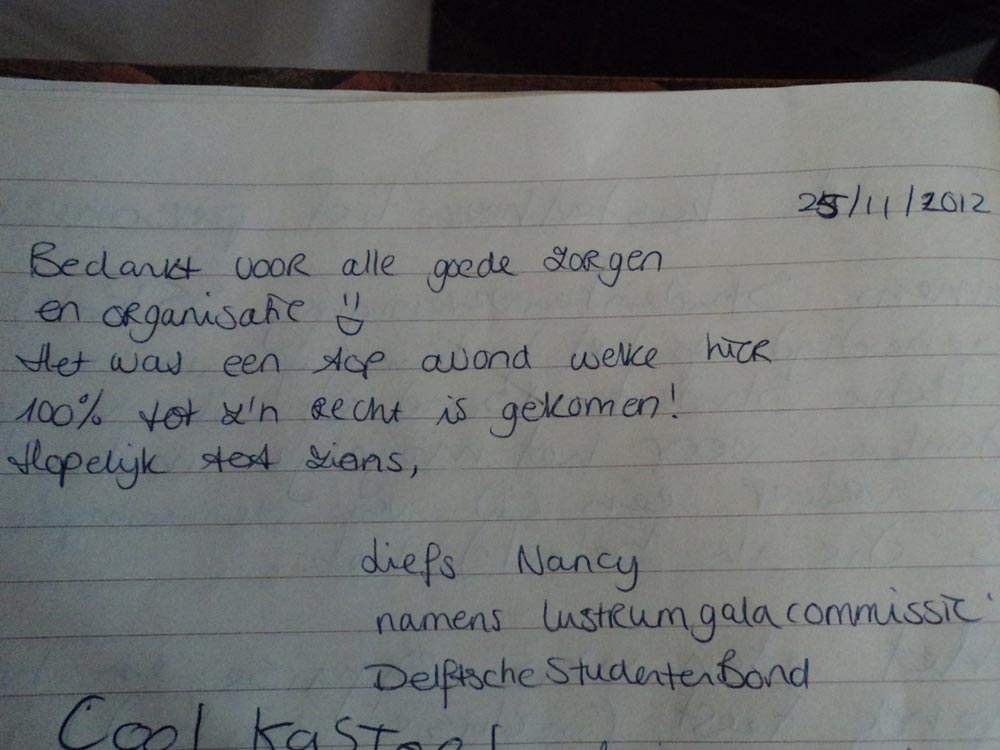 25/11/2012
Bedankt voor alle goede zorgen
en organisatie
Het was een top avond welke hier
100% tot z'n recht is gekomen!
Hopelijk tot ziens,
liefs Nancy
namens lustrumgalacommissie
Delftsche StudentenBond
Cool kasteel